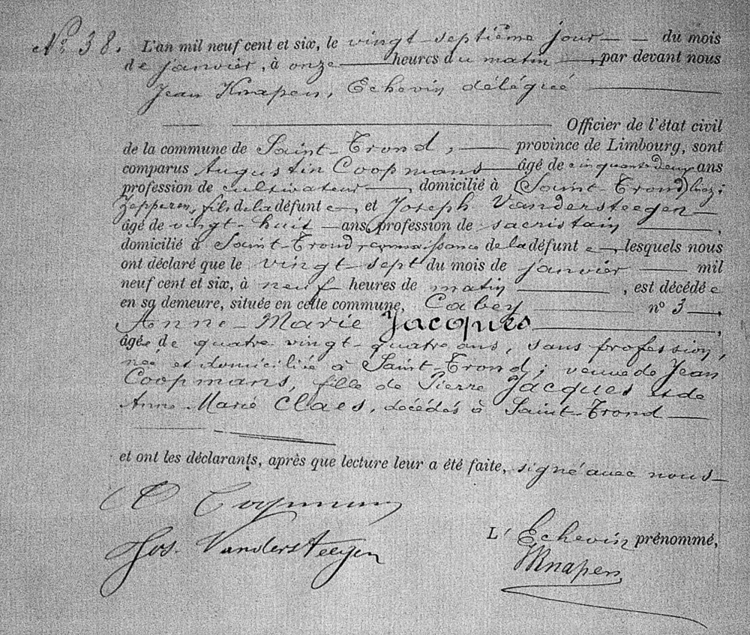 No 38. L'an mil neuf cent et six, le vingt septième jour du mois
de janvier, à onze heures du matin, par devant nous
Jean Knapen, Echevin délégué
Officier de l'état civil
de la commune de Saint-Trond, province de Limbourg, sont
comparus Augustin Coopmans âgé de cinquante deux ans
profession de cultivateur, domicilié à (Saint-Trond)
Zepperen, fils de la défunte, et Joseph Vandersteegen
âgé de vingt-huit ans, profession de sacristain,
domicilié à Saint-Trond, connaissance de la défunte, lesquels nous
ont déclaré que le vingt-sept du mois de janvier mil
neuf cent et six, à neuf heures de matin, est décédée
en sa demeure, située en cette commune, no 3,
Anne-Marie Jacques
âgée de quatre vingt-quatre ans, sans profession,
née et domiciliée à Saint-Trond; veuve de Jean
Coopmans, fille de Pierre Jacques et de
Anne-Marie Claes, décédés à Saint-Trond
et ont les déclarants, après que lecture leur a été faite, signé avec nous
A Coopmans
Jos. Vandersteegen
L'Echevin prénommé,
JKnapen